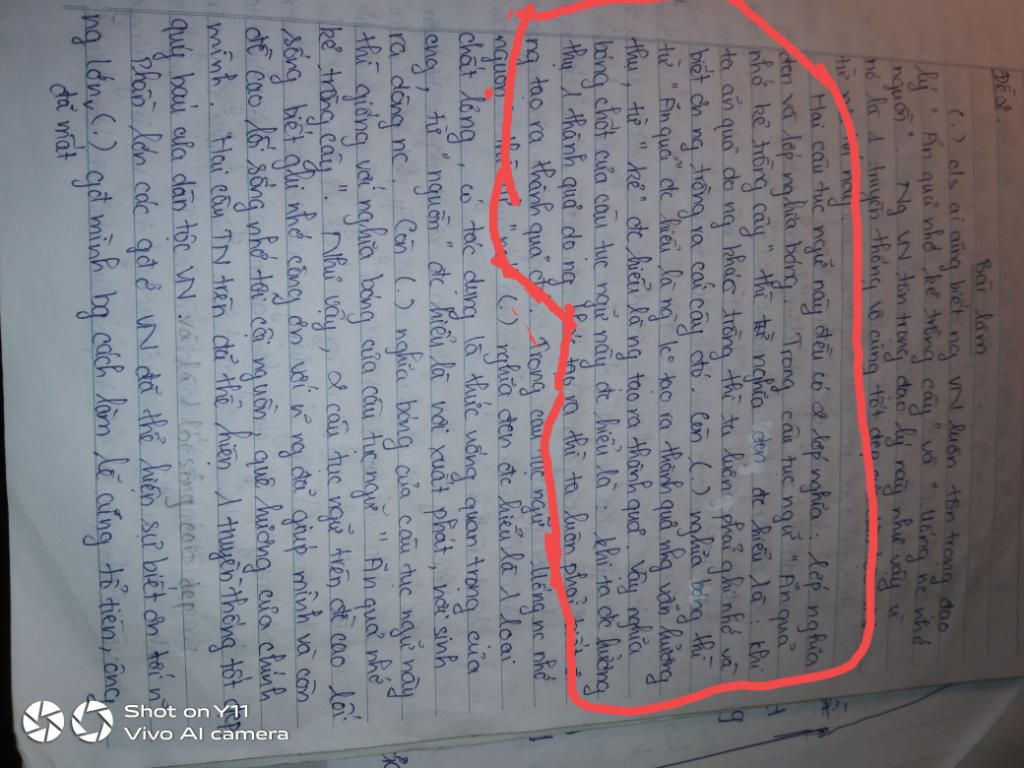 Đề 2.
Bài làm
(.) c/s ai cũng biết ng VN luôn tôn trọng đạo
lý " Ăn quả nhớ kẻ trồng cây " và " Uống nc nhớ
nguồn ". Ng VN tôn trọng đạo lý này như vậy vì
nó là 1 truyền thống vô cùng tốt đẹp
từ này
Hai câu tục ngữ này đều có 2 lớp nghĩa : lớp nghĩa
đen và lớp nghĩa bóng. Trong câu tục ngữ " Ăn quả
nhớ kẻ trồng cây " thì nghĩa đen đc hiểu là : khi
ta ăn quả do ng khác trồng thì ta luôn phải ghi nhớ và
biết ơn ng trồng ra cái cây đó. Còn (.) nghĩa bóng thì
từ " Ăn quả " đc hiểu là ng ko tạo ra thành quả nhg vẫn hưởng
thụ, từ " kẻ " đc hiểu là ng tạo ra thành quả. Vậy nghĩa
bóng chốt của câu tục ngữ này đc hiểu là : khi ta đã hưởng
thụ 1 thành quả do ng tạo ra thì ta luôn phải
ng tạo ra thành quả Trong câu tục ngữ " Uống nc nhớ
nguồn " (.) nghĩa đen đc hiểu là 1 loại
chất lỏng, có tác dụng là thức uống quan trọng của
từ " nguồn " đc hiểu là nơi xuất phát, nơi sinh
ra dòng nc. Còn (.) nghĩa bóng của câu tục ngữ này
thì giống với nghĩa bóng của câu tục ngữ " Ăn quả nhớ
kẻ trồng cây ". Như vậy, 2 câu tục ngữ trên đề cao lối
sống biết ghi nhớ công ơn với n ng đã giúp mình và còn
đề cao lối sống nhớ tới cội nguồn, quê hương của chính
mình. Hai câu TN trên đã thể hiện 1 truyền thống tốt
quý báu của dân tộc VN và là 1 lối sống cao đẹp
Phần lớn các gđ ở VN đã thể hiện sự biết ơn tới n
ng lớn (.) gđ mình bg cách làm lễ cúng tổ tiên, ông
đã mất
Shot on Y11
Vivo AI camera